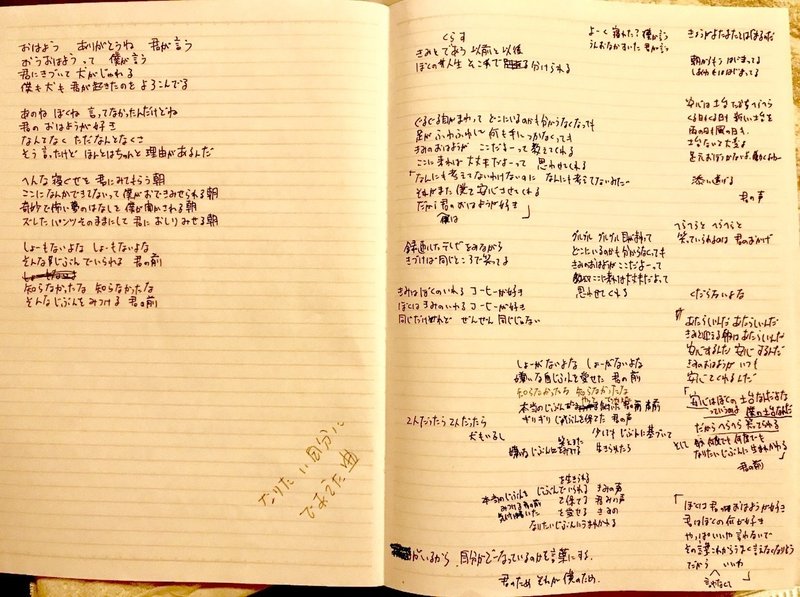 おはよう ありがとうね 君が言う
おうおはよう って 僕が言う
君にきづいて 犬がじゃれる
僕も犬も 君が起きたのを よろこんでる
あのね ぼくね 言ってなかったんだけどね
君の おはようが好き
なんとなく ただなんとなくさ
そう言ったけど ほんとはちゃんと 理由があるんだ
へんな寝ぐせを 君にみてもらう朝
ここになんかできてないって 僕がおでこみせられる朝
奇妙で怖い夢のはなしを 僕が聞かされる朝
ズレたパンツそのままにして 君に おしりみせる朝
しょーもないよな しょーもないよな
そんなじぶんでいられる 君の前
知らなかったな 知らなかったな
そんなじぶんをみつける 君の前
なりたい自分に
であえた曲
くらす
きみとであう 以前と以後
ぼくの人生 そこで 分けられる
ぐるぐる目がまわって どこにいるのかも分からなくなっても
足が ふわふわ 何も手につかなくても
きみのおはようが ここだよーって 教えてくれる
ここに来れば 大丈夫だよーって 思わせてくれる
「なんにも考えてないわけないのに なんにも考えてないみたいな
それがまた 僕を安心させてくれる
だから 君のおはようが好き」
僕は
録画したテレビをみながら
きづけば同じところで笑ってよ
きみはぼくのいれる コーヒーが好き
ぼくはきみのいれる コーヒーが好き
同じだけれど ぜんぜん 同じじゃない
よーく 寝れた? 僕が言う
うんおなかすいた 君が言う
グルグル グルグル 目がまわって
どこにいるのかも分からなくても
きみのおはようが ここだよーって
ここに来れば大丈夫だよって
思わせてくれる
しょーがないよな しょーがないよな
嫌いな じぶんを愛せた 君の前
知らなかったな 知らなかったな
本当のじぶん
ギリギリ じぶんを保てた 君の声
2人だったら 2人だったら
犬もいるし
少しでも じぶんに基づいて
生きられたら
を生きられる
本当のじぶんを じぶんでいられる きみの声
みつける 君の前
を保てる 君の声
を愛せる きみの
なりたいじぶんにうまれかわる
がいるから 自分がどーなっているのかを言葉にする.
君のため それが僕のため.
朝がもう はじまってる
添い遂げる
君の声
へらへらと へらへらと
笑っていられるのは 君のおかげ
くだらないよな
あたらしいんだ あたらしいんだ
きみと迎える朝は あたらしいんだ
安心するんだ 安心するんだ
きみのおはようが いつも
安心てくれるんだ
「安心はぼくの 土台なんだよな
っていうか 僕の土台なんだ
だから へらへら 笑ってられる
として 何度でも 何度でも
なりたいじぶんに 生まれかわる
君の前
「ぼくは 君のおはようが好き
君はぼくの何が好き
やっぱいいや 言わないで
その言葉 これからうまく言えなくなりそう
だから いいわ
言わなくて」